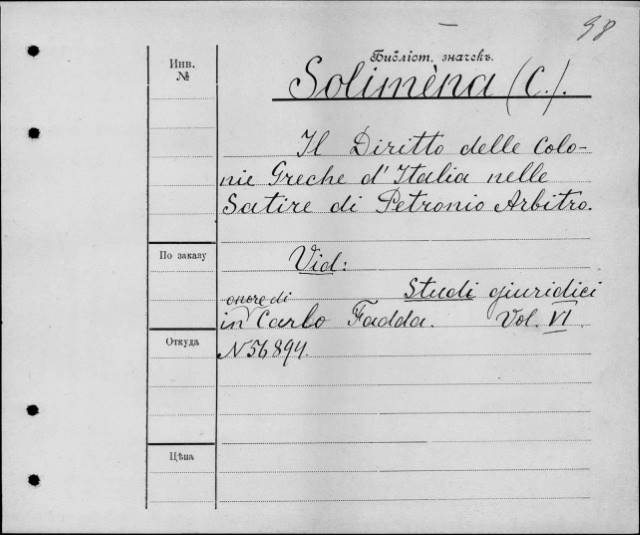 98
Библіот. значекъ.
Инв.
№
Solimèna (C.).
Il Diritto delle Colo-
nie Greche d'Italia nelle
Satire di Petronio Arbitro.
По заказу
Vid:
Studi giuridici
onore di
in Carlo Fadda. Vol. VI.
Откуда
N 56894.
Цѣна